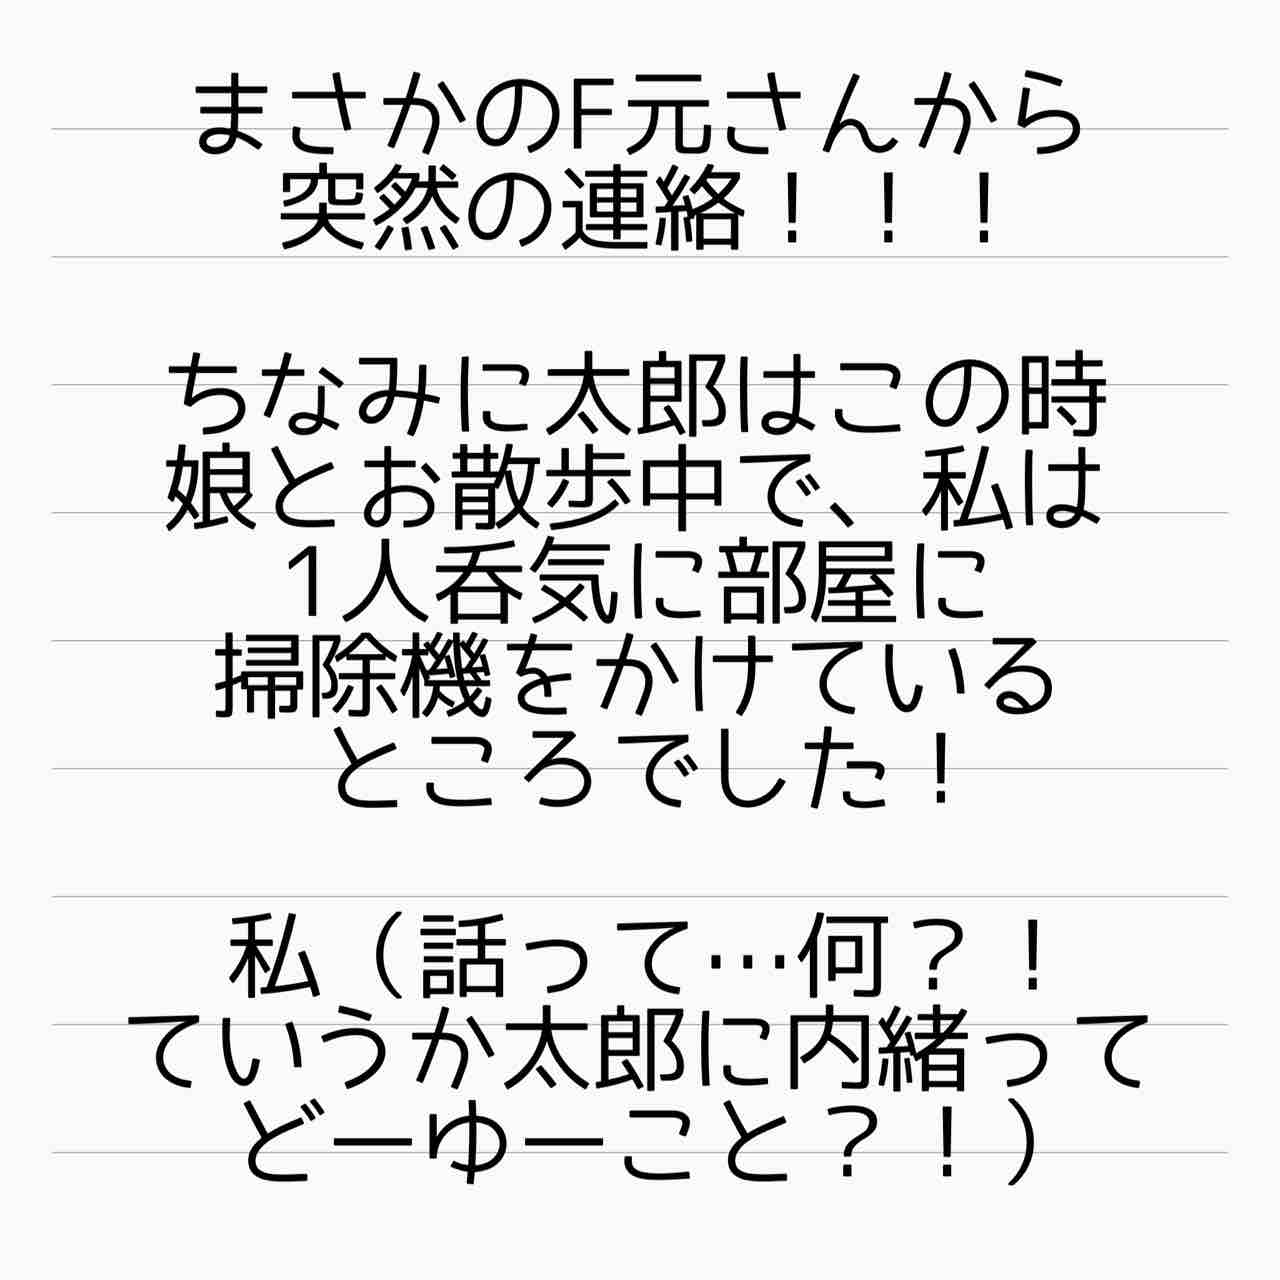 まさかのF元さんから
突然の連絡！！！
ちなみに太郎はこの時
娘とお散歩中で、私は
1人呑気に部屋に
掃除機をかけている
ところでした！
私（話って…何？！
ていうか太郎に内緒って
どーゆーこと？！）